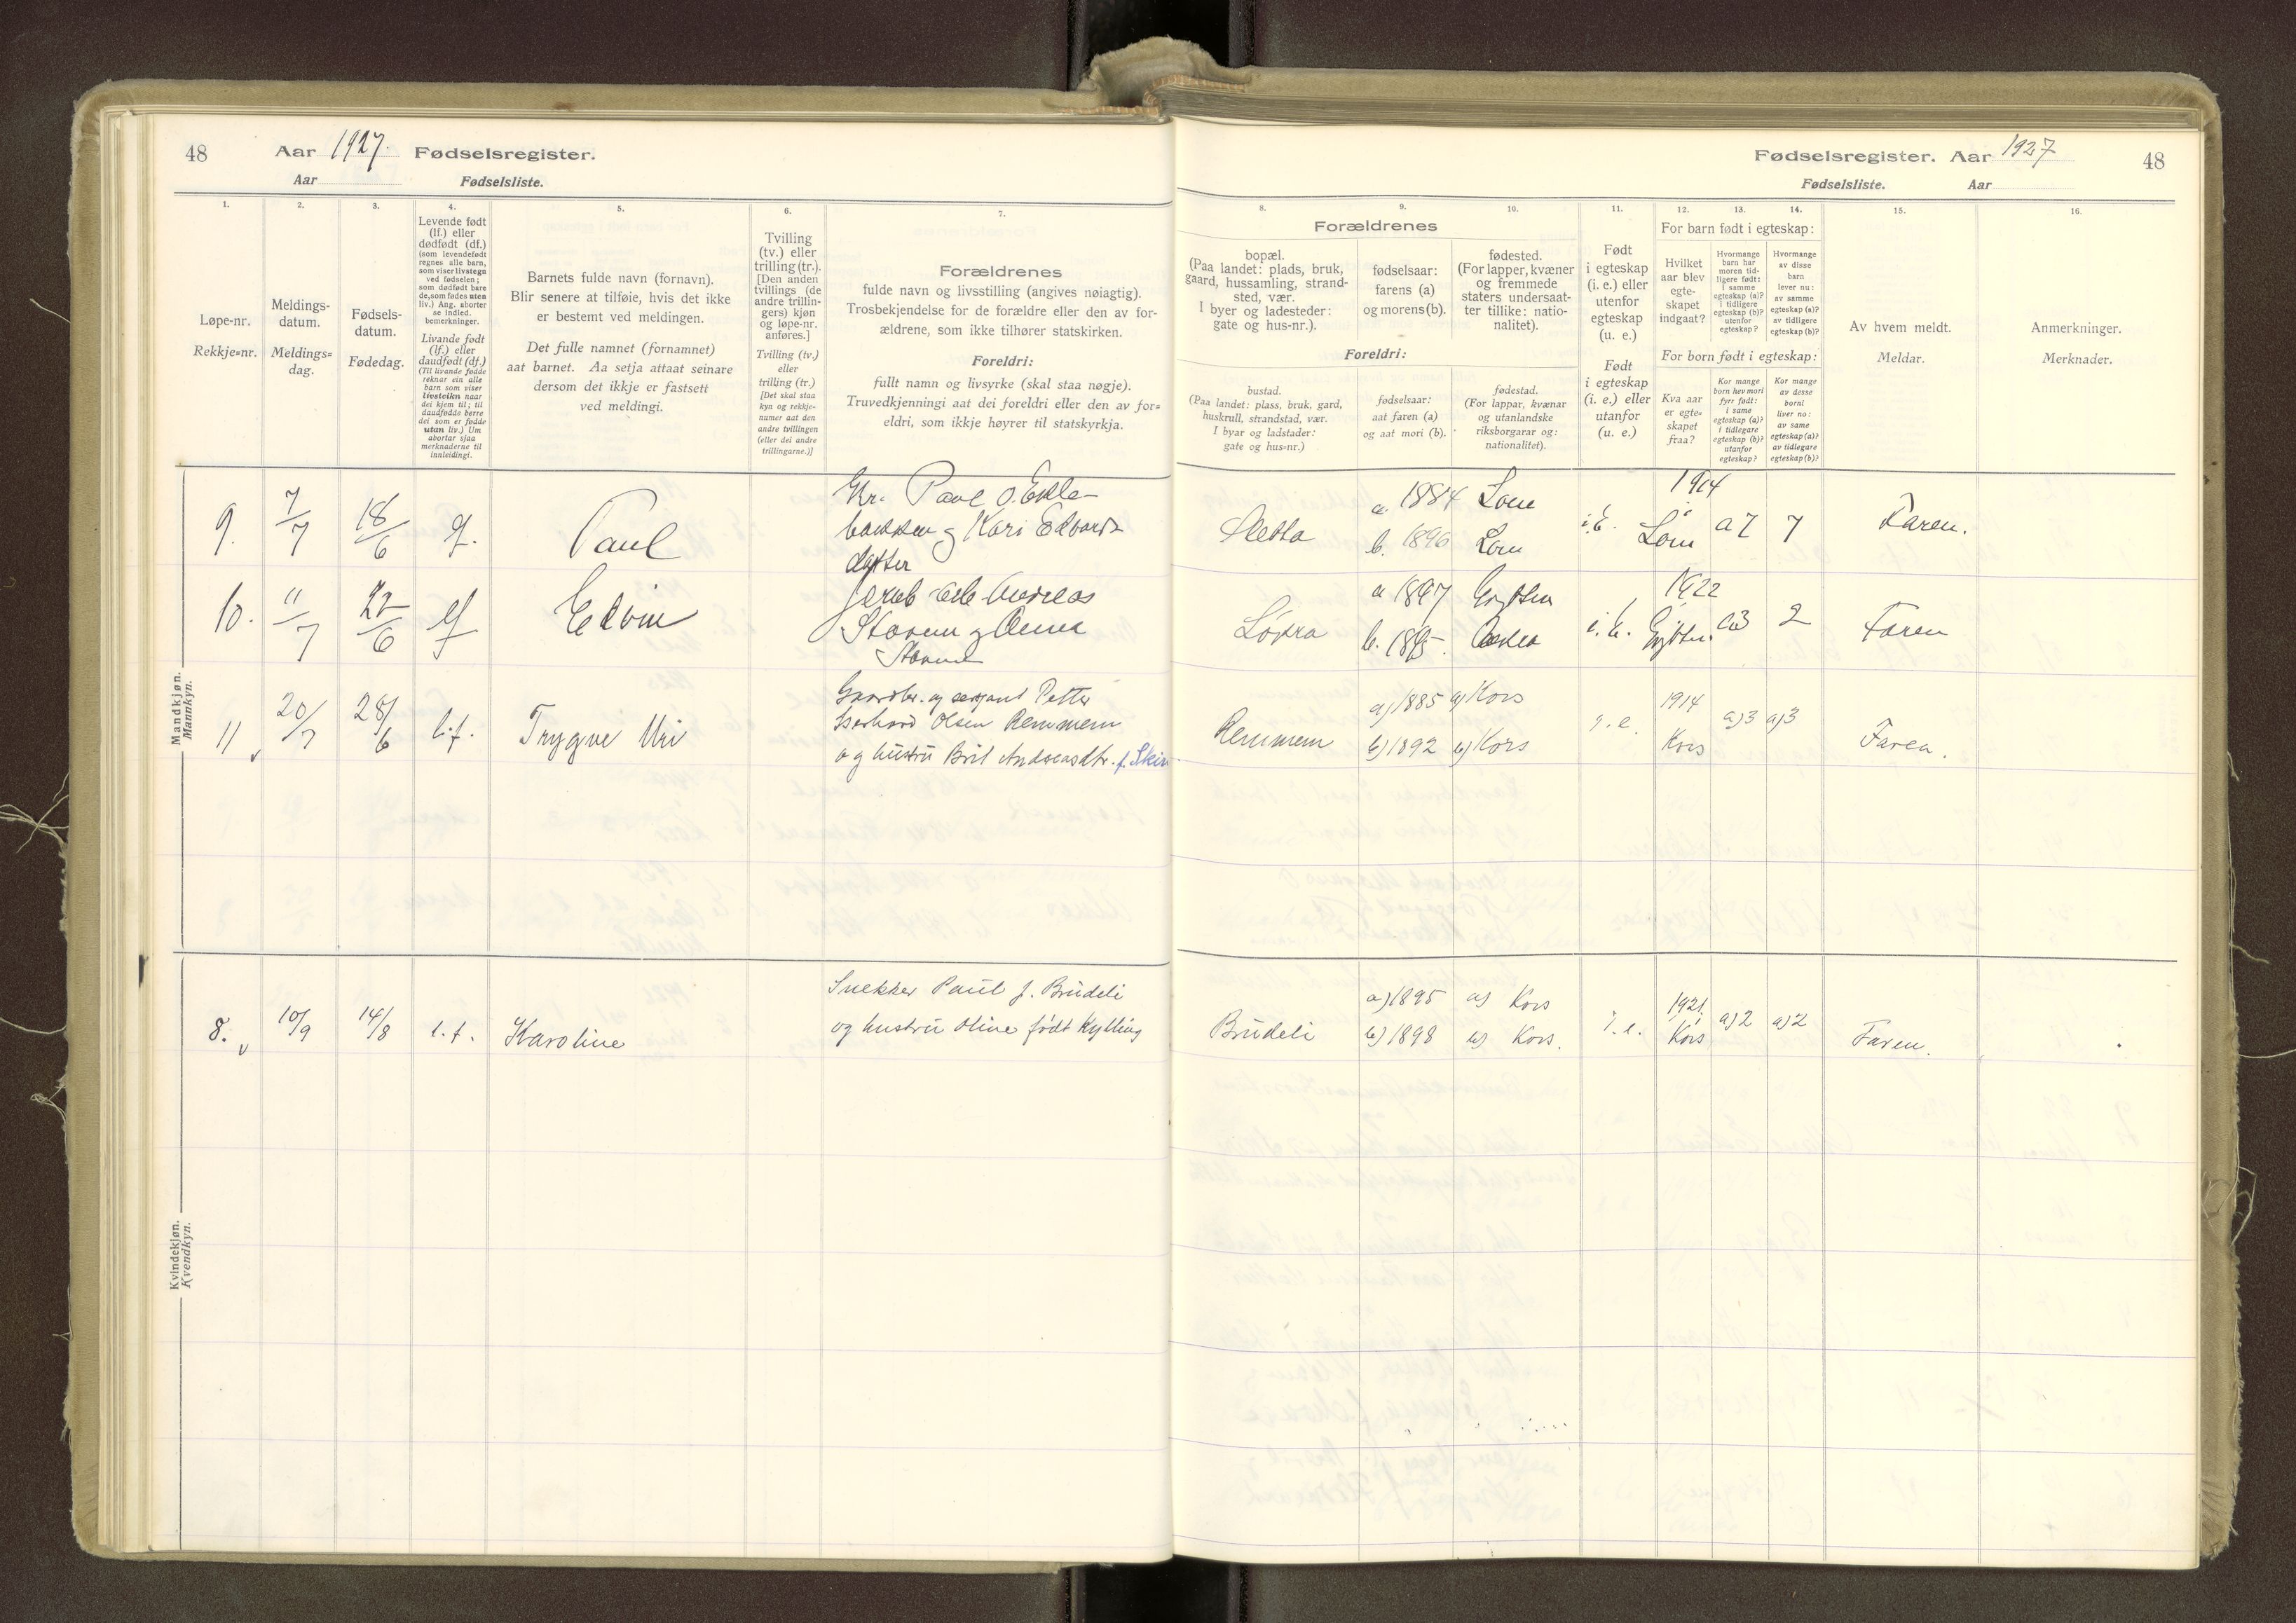 48 Aar 1927. Fødselsregister.
Aar Fødselsliste.
Fødselsregister. Aar 1927 48
Fødselsliste. Aar
1.
Løpe-nr.
Rekkje=nr.
2.
Meldings-
datum.
Meldings=
dag.
3.
Fødsels-
datum.
Fødedag.
4.
Levende født
(lf.) eller
dødfødt (df.)
(som levendefødt
regnes alle barn,
som viser livstegn
ved fødselen;
som dødfødt bare
de, som fødes uten
liv.) Ang. aborter
se indled.
bemerkninger.
Livande født
(lf.) eller
daudfødt (df.)
(Til livande fødde
reknar ein alle
barn som viser
livsteikn naar
dei kjem til; til
daudfødde berre
dei som er fødde
utan liv.) Um
abortar sjaa
merknaderne til
innleidingi.
5.
Barnets fulde navn (fornavn).
Blir senere at tilføie, hvis det ikke
er bestemt ved meldingen.
Det fulle namnet (fornamnet)
aat barnet. Aa setja attaat seinare
dersom det ikkje er fastsett
ved meldingi.
6.
Tvilling
(tv.) eller
trilling (tr.).
[Den anden
tvillings (de
andre trillin-
gers) kjøn
og løpe-nr.
anføres.]
Tvilling (tv.)
eller
trilling (tr.)
[Det skal staa
kyn og rekkje-
numer aat den
andre tvillingen
(eller dei andre
trillingarne.)]
7.
Forældrenes
fulde navn og livsstilling (angives nøiagtig).
Trosbekjendelse for de forældre eller den av for-
ældrene, som ikke tilhører statskirken.
Foreldri:
fullt namn og livsyrke (skal staa nøgje).
Truvedkjenningi aat dei foreldri eller den av for=
eldri, som ikkje høyrer til statskyrkja.
8. 9. 10.
Forældrenes
bopæl.
(Paa landet: plads, bruk,
gaard, hussamling, strand-
sted, vær.
I byer og ladesteder:
gate og hus-nr.).
fødselsaar:
farens (a)
og morens (b).
fødested.
(For lapper, kvæner
og fremmede
staters undersaat-
ter tillike: natio-
nalitet).
Foreldri:
bustad.
(Paa landet: plass, bruk, gard,
huskrull, strandstad, vær.
I byar og ladstader:
gate og hus=nr.)
fødselsaar:
aat faren (a)
og aat mori (b).
fødestad.
(For lappar, kvænar
og utanlandske
riksborgarar og:
nationalitet).
11.
Født
i egteskap
(i. e.) eller
utenfor
egteskap
(u. e.)
Født
i egteskap
(i. e.) eller
utanfor
(u. e.)
12. 13. 14.
For barn født i egteskap:
Hvilket
aar blev
egte-
skapet
indgaat?
Hvormange
barn har
moren tid-
ligere født:
i samme
egteskap (a)?
i tidligere
egteskap (b)?
utenfor
egteskap?
Hvormange
av disse
barn
lever nu:
av samme
egteskap (a)?
av tidligere
egteskap (b)?
For born født i egteskap:
Kva aar
er egte=
skapet
fraa?
Kor mange
born hev mori
fyrr født:
i same
egteskap (a)?
i tidlegare
egteskap (b)?
utanfor
egteskap?
Kor mange
av desse
borni
liver no:
av same
egteskap (a)?
av tidlegare
egteskap (b)?
15.
Av hvem meldt.
Meldar.
16.
Anmerkninger.
Merknader.
Mandkjøn.
Mannkyn.
9. 7/7 18/6 Paul
Paul O.
og Kari Edvards
datter
a. 1884 Lom
b. 1896 Lom
i. e. 1914 Lom a 7 7 Faren.
10. 11/7 22/6 lf Edvin
Andreas
Stavem og Anna
Stavem
Løkra
a 1897 Grytten
b. 1895
i. e. 1922 Grytten. a3 2 Faren
11 20/7 28/6 l.f. Trygve Uri
Gaardbr. og sersjant Petter
Gerhard Olsen Remmem
og hustru Brit Andreasdtr. f. Skiri
Remmem
a) 1885 a) Kors
b) 1892 b) Kors
i. e. 1914 Kors a) 3 a) 3 Faren.
Kvindekjøn.
Kvendkyn.
8. 10/9 14/8 l.f. Karoline
Snekker Paul J. Brudeli
og hustru Oline født Kylling
Brudeli
a) 1895 a) Kors
b) 1898 b) Kors.
i. e. 1921. Kors a) 2 a) 2 Faren.